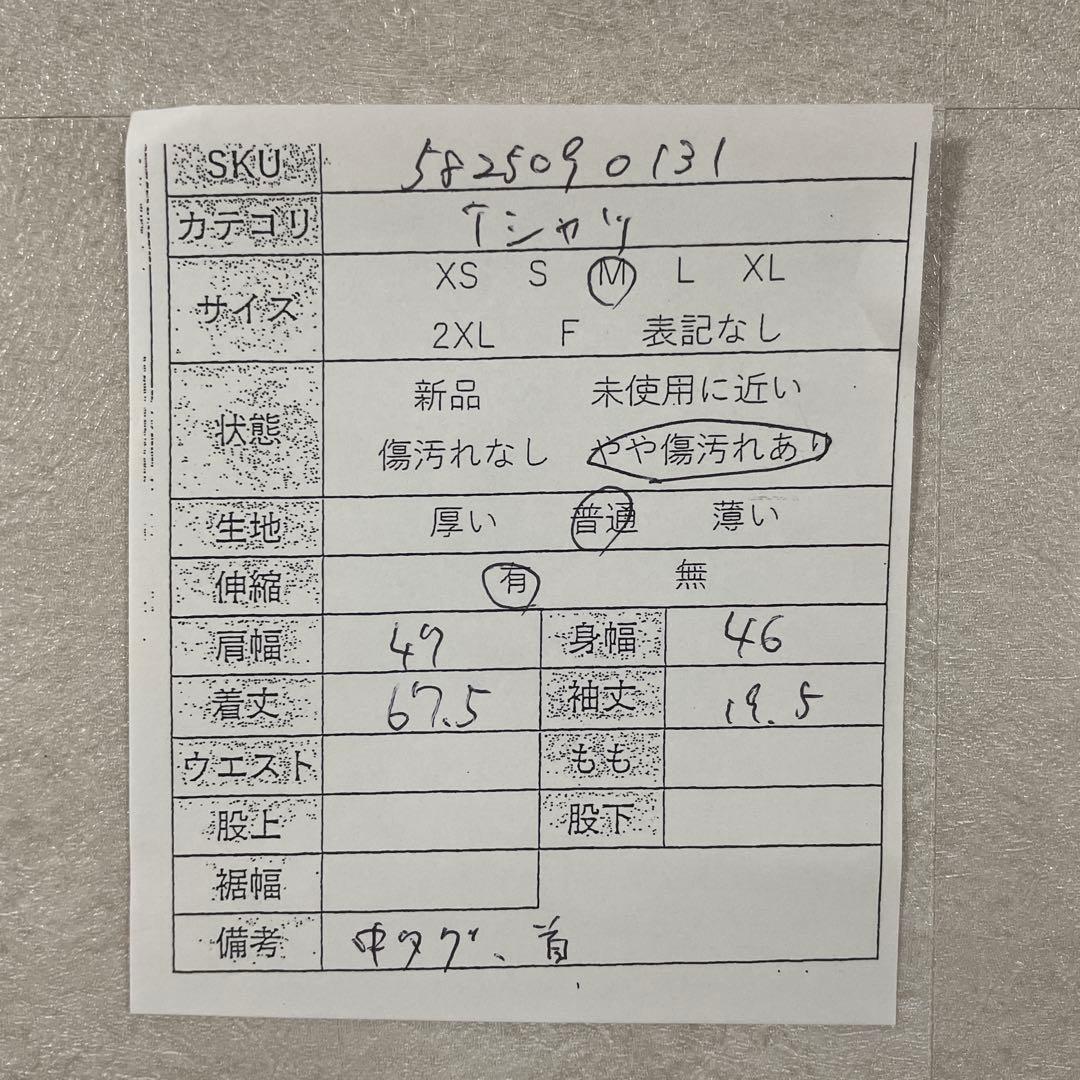 SKU 5825090131
カテゴリ Tシャツ
サイズ XS S M L XL
2XL F 表記なし
状態 新品 未使用に近い
傷汚れなし やや傷汚れあり
生地 厚い 普通 薄い
伸縮 有 無
肩幅 49 身幅 46
着丈 67.5 袖丈 19.5
ウエスト もも
股上 股下
裾幅
備考 中タグ、首